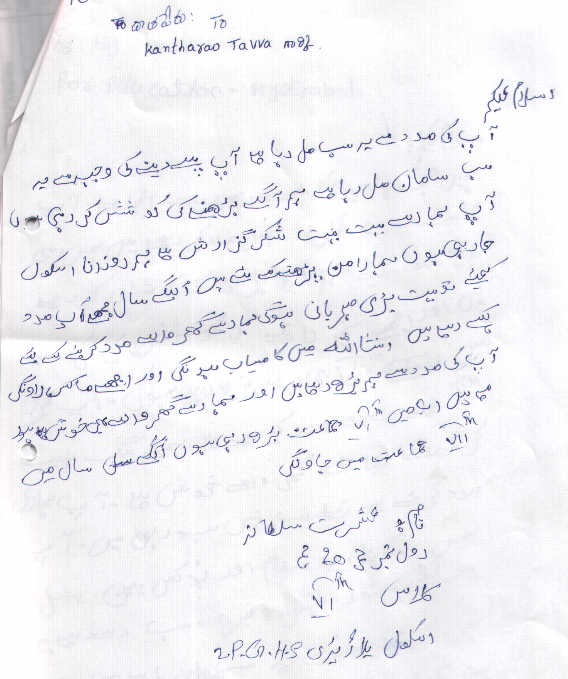 To
Kantharao Tavva
اسلام علیکم
آپ کی مدد سے یہ سب مل رہا ہا آپ پیسے دینے کی وجہ سے یہ
سب سامان مل رہا ہے ہم آگے بڑھنے کی کوشش کر رہی ہوں
آپ ہمارے بہت بہت شکر گزارش ہا ہم روزانا اسکول
جا رہی ہوں ہمارا من پڑھنے کے لئے ہیں اگلے سال مجھے آپ مدد
کیئے تو بہت بڑی مہربانی ہوگی ہمارے گھر والے مدد کرنے کے لئے
کہے رہا ہیں انشااللہ میں کامیاب ہونگی اور اچھے ماکس لاونگی
آپ کی مدد سے ہم پڑھ رہا ہیں اور ہمارے گھر والے بھی خوش
ہیں اب میں VI th جماعت پڑھ رہی ہوں اگلے سال میں
VII th جماعت میں جاونگی
نام عشرت سلطانہ
رول نمبر 20
کلاس VI th
اسکول Z.P.G.H.S